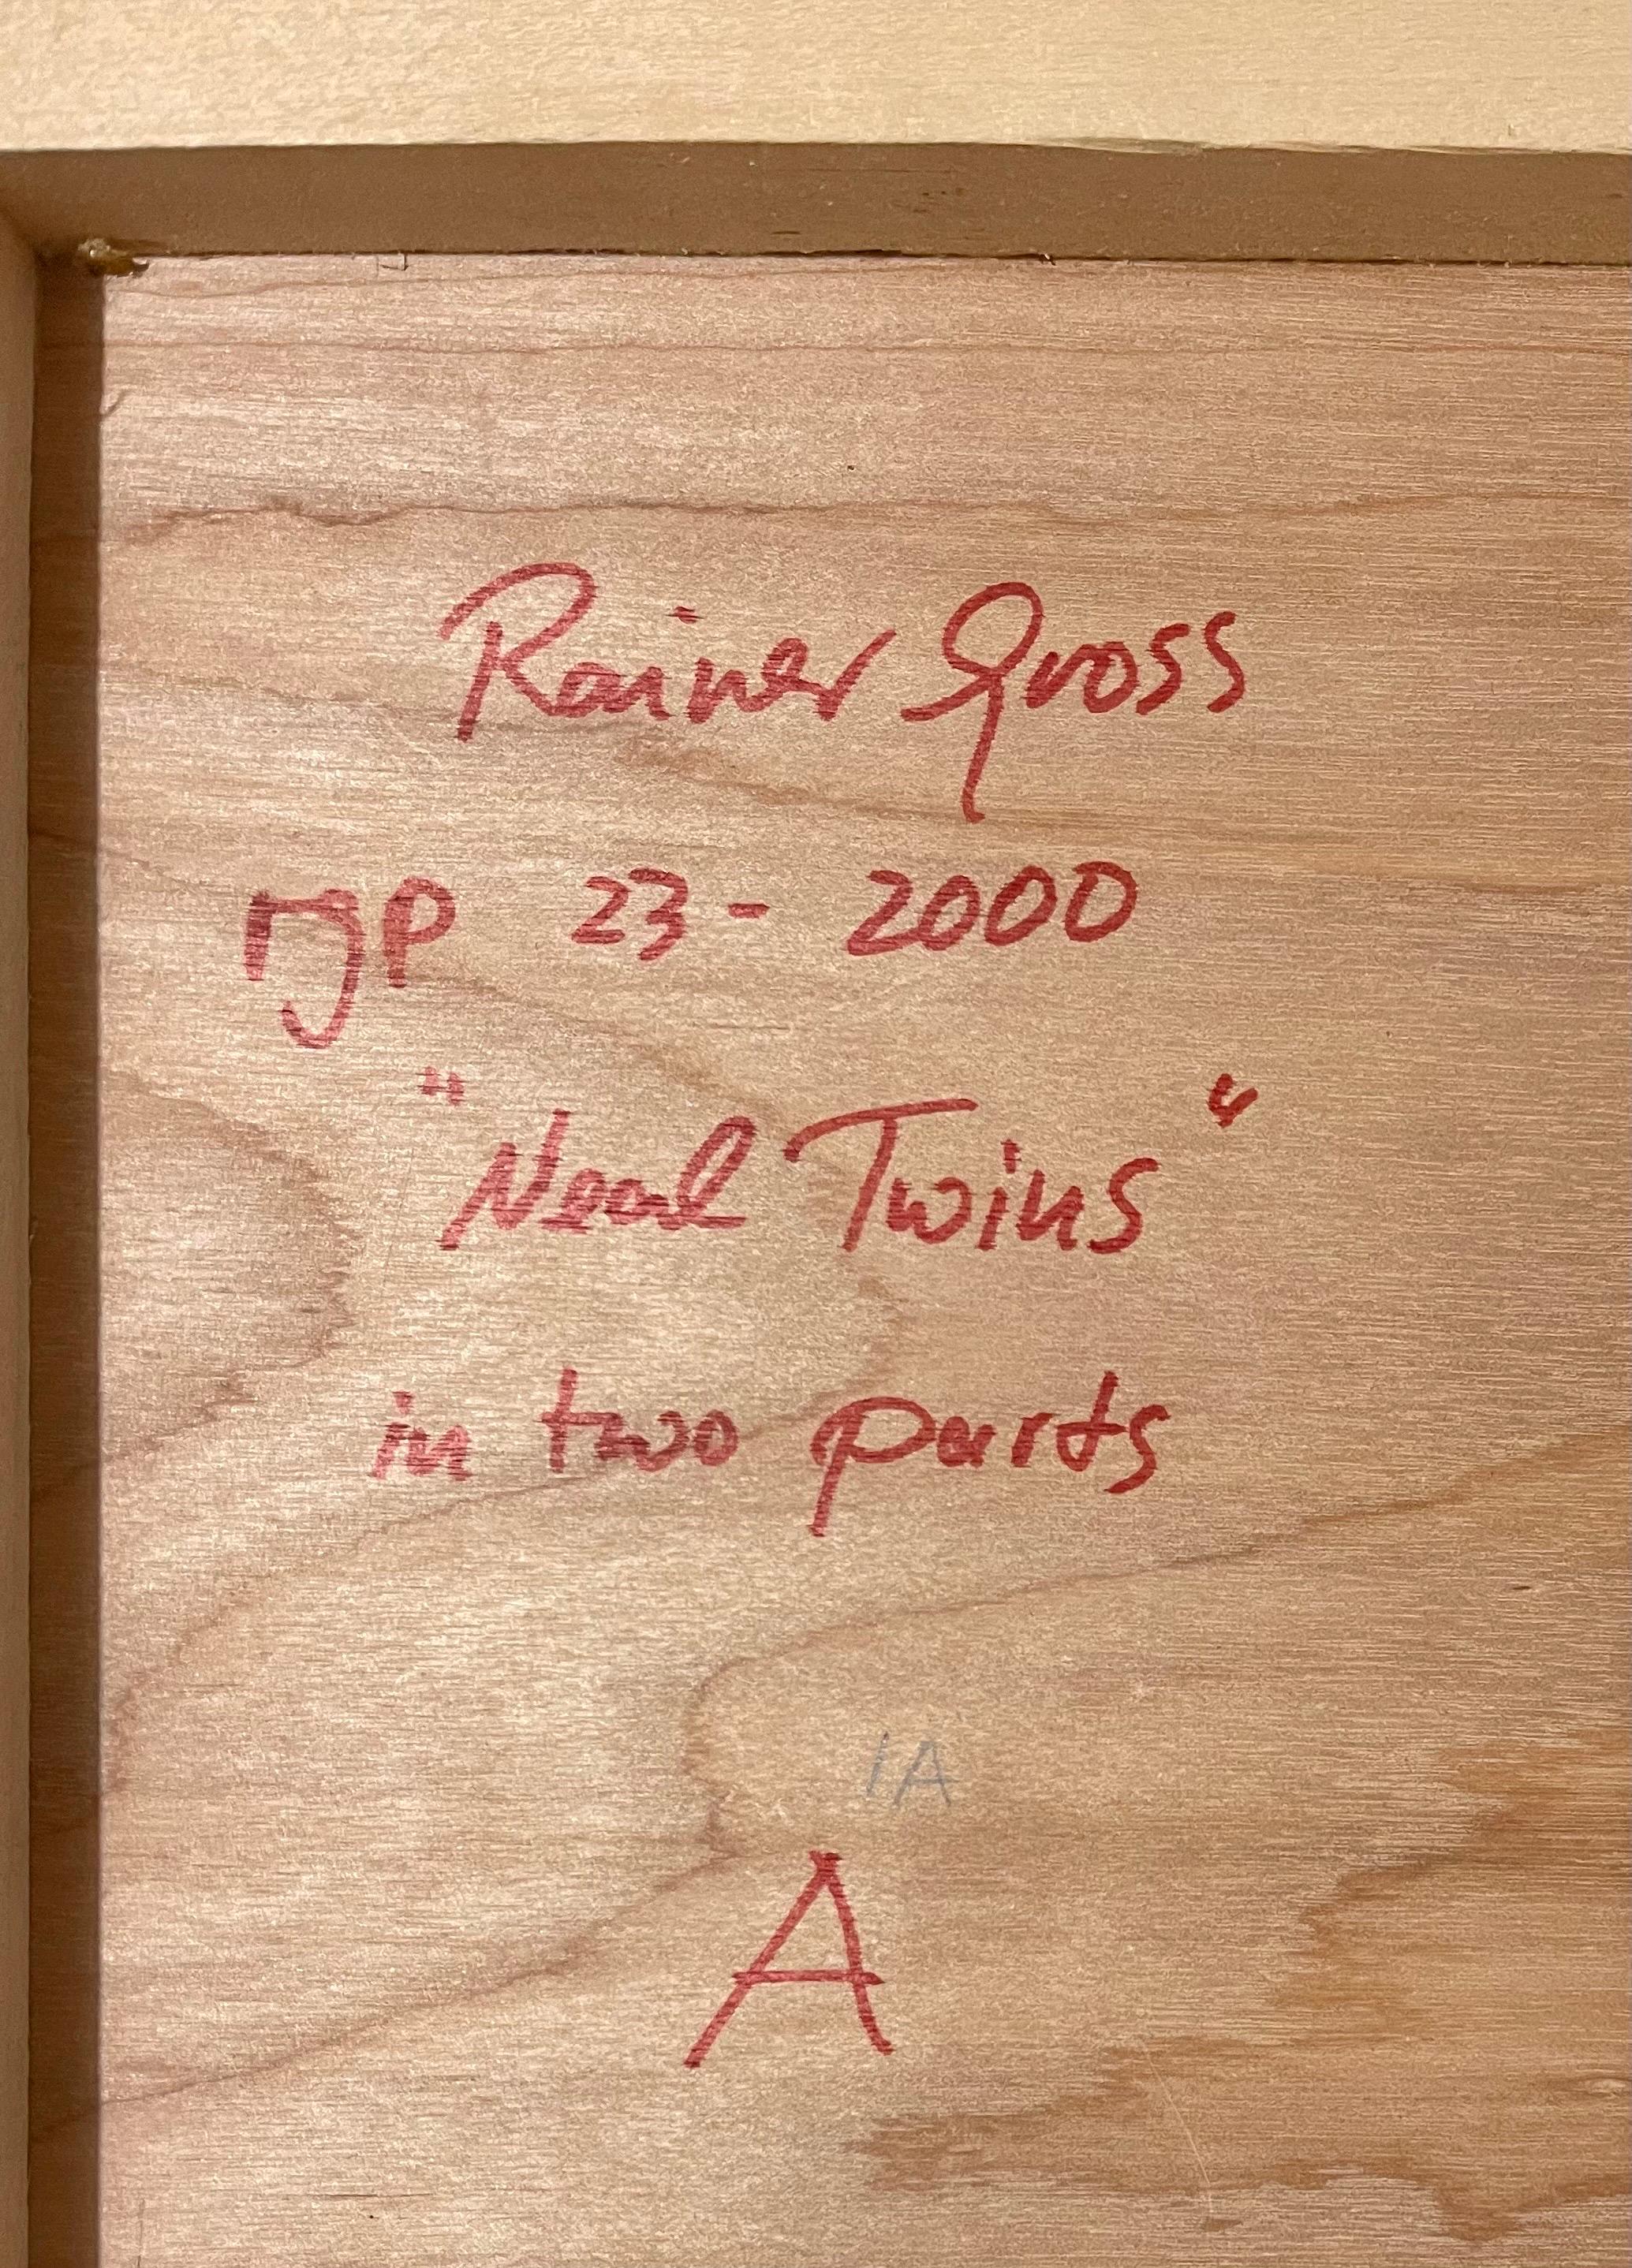 Rainer Gross
rgp 23 - 2000
"Neal Twins"
in two parts
1A
A